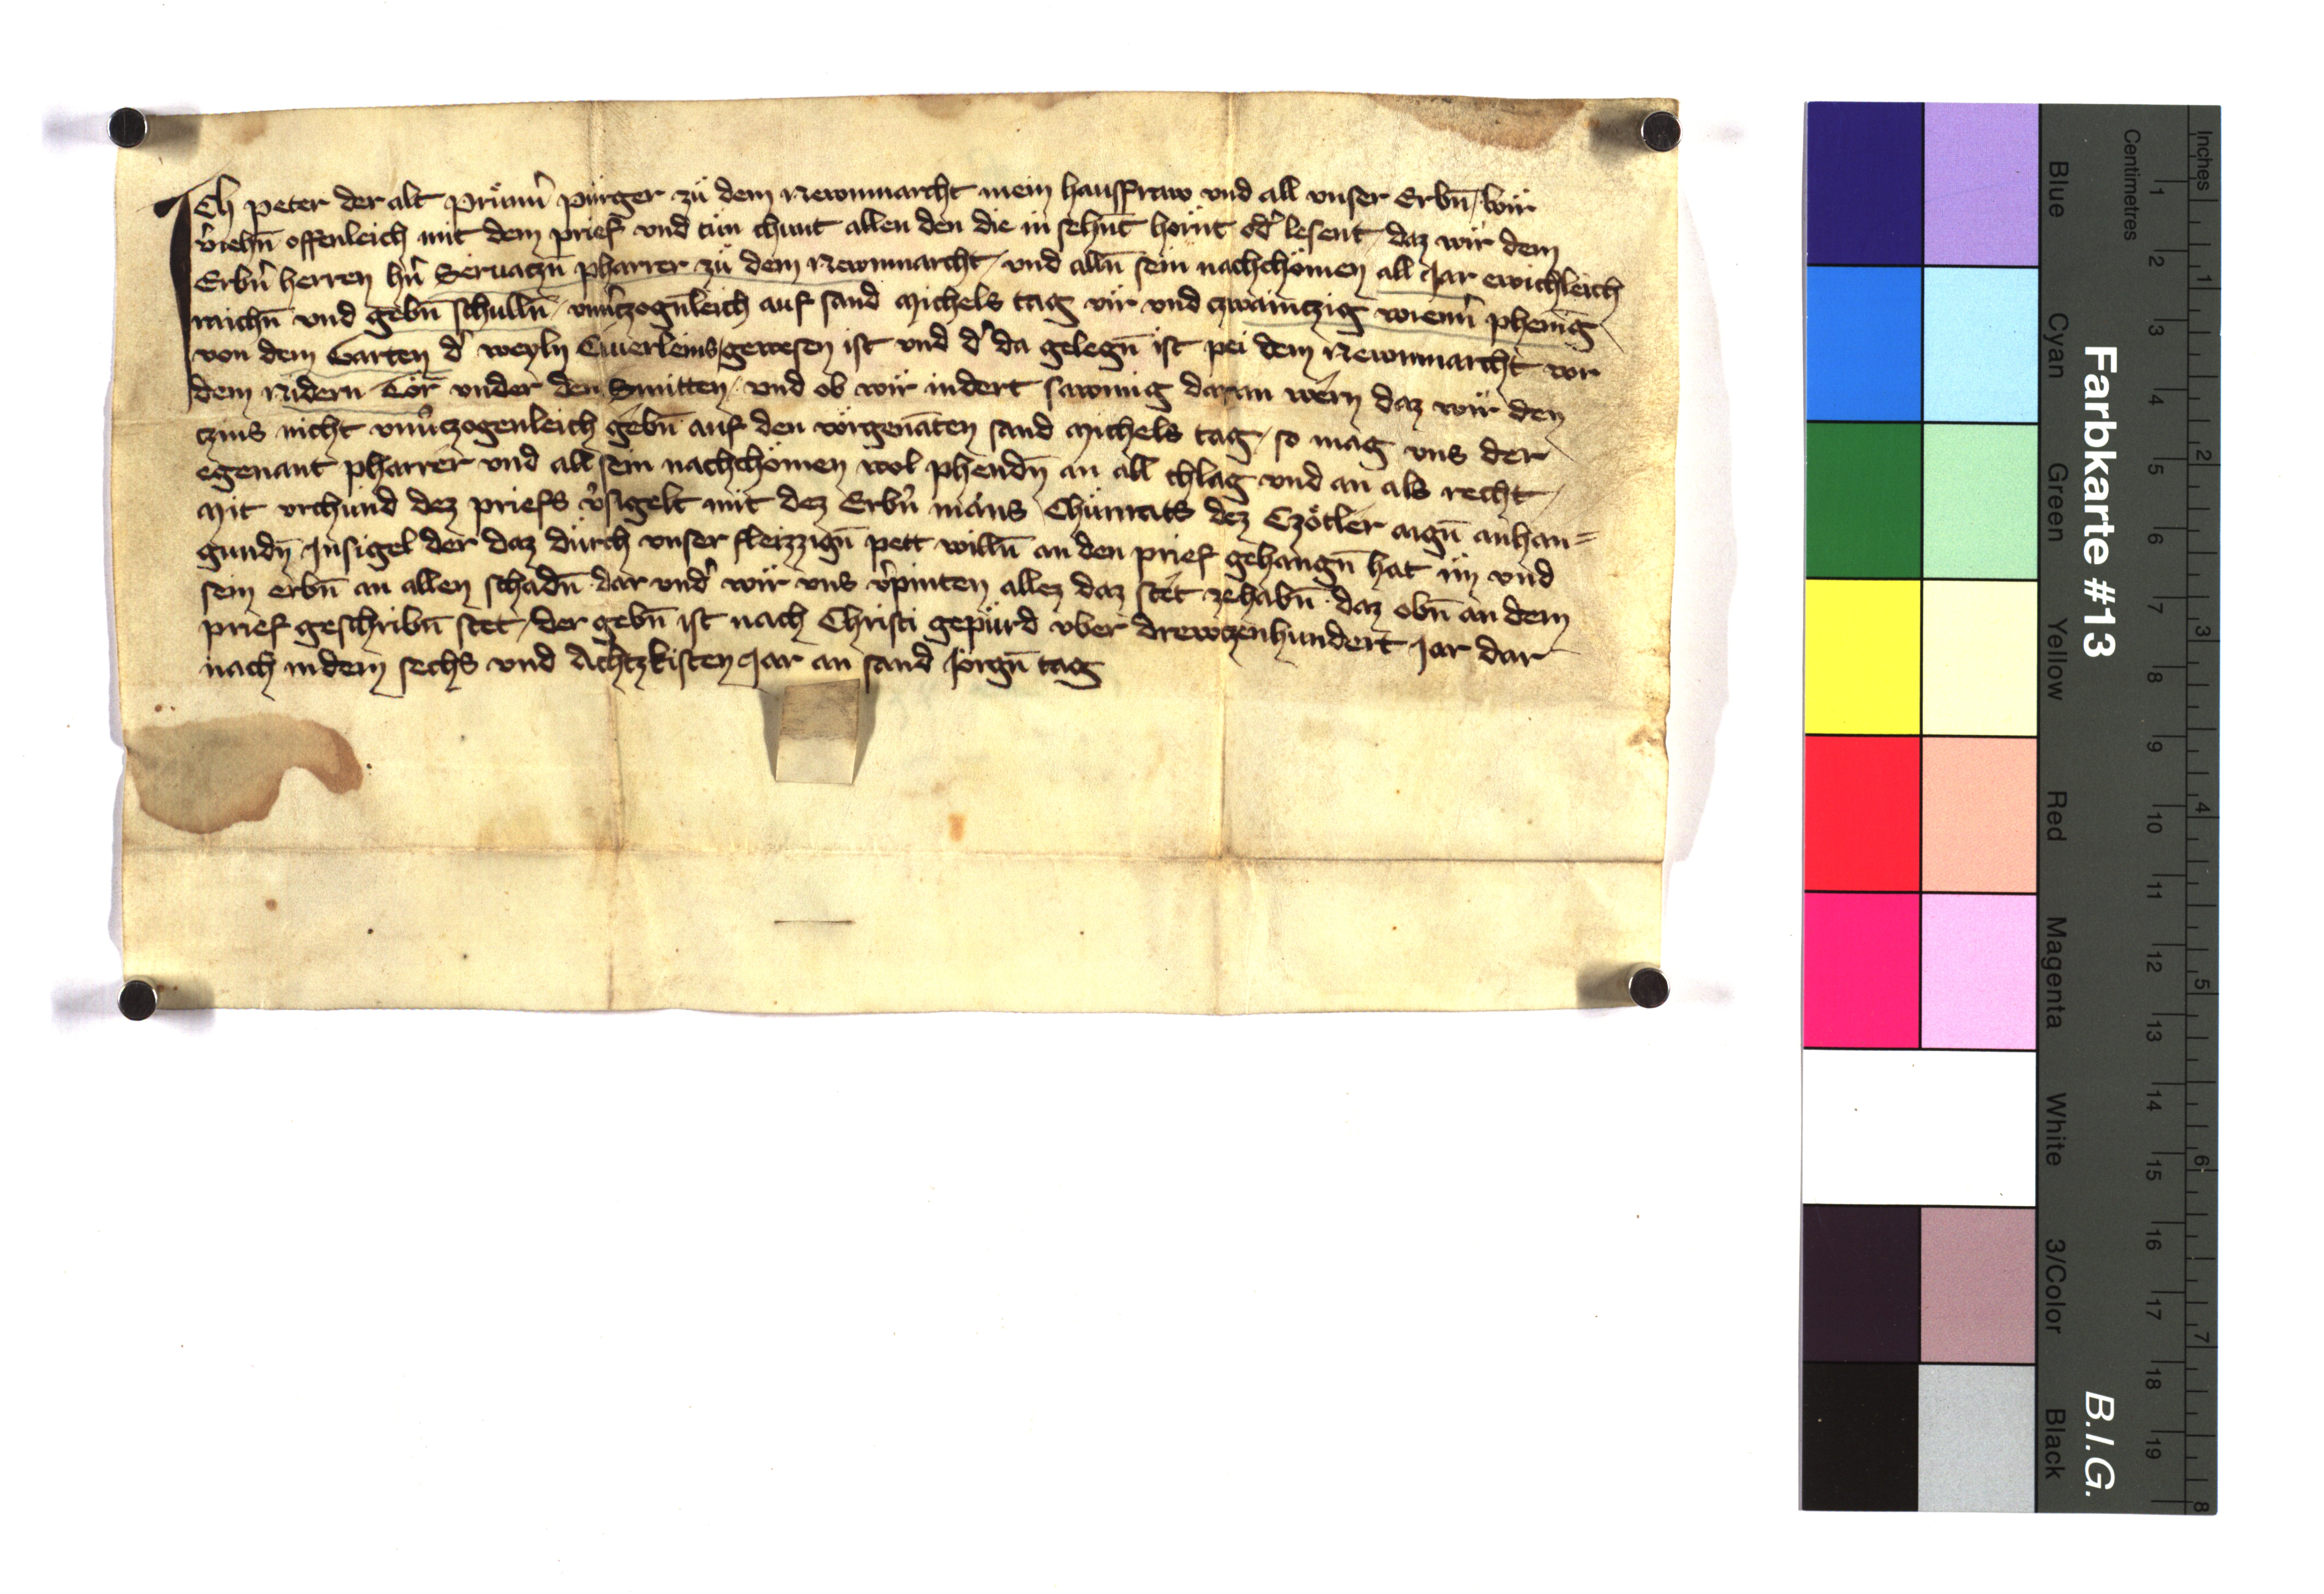 Ich peter der alt Prüнn̄ pürger zü dem Newnmarcht mein hausfraw vnd all vnser Erbn̄ / wir
v̓iehn̄ offenleich mit dem prief vnd tün chunt allen den die in sehn̄t hörn̄t od̓ lesent / daz wir dem
Erbn̓ herren hn̓ Seruaczn̄ pharrer zü dem Newnmarcht / vnd alln̄ sein nachchömen all Jar ewichleich
raichn̄ vnd gebn̄ schulln̄ / vnu̓czogn̄leich auf sand Michels tag vir vnd czwainczig wienn̓ phenig
von dem Garten d̓ weyln gewesen ist vnd d̓ da gelegn̄ ist pei dem Newnmarcht vor
dem Nidern Tör vnder den Smitten / vnd ob wir indert sawmig daran wern daz wir den
czins nicht vnu̓czogenleich gebn̄ auf den vörgenāten sand Michels tag / so mag vns der
egenant pharrer vnd all sein nachchömen wol phendn̄ an all chlag vnd an als recht /
Mit vrchünd dez priefs v̓sigelt mit dez Erbn̓ mans Chünrats dez Czötler aign̄ anhan=
gundn̄ Insigel der daz dürch vnser fleizzign̄ pett willn̄ an den prief gehangn̄ hat im vnd
sein erbn̄ an allen schadn̄ dar vnd̓ wir vns v̓pinten allez daz stet zehabn̄ daz obn̄ an dem
prief geschribn̄ stet / der gebn̄ ist nach Christi gepürd vber drewczenhundert Jar dar
nach in dem sechs vnd Achtzkisten Jar an sand Jörgn̄ tag
Inches
Centimetres
1 2 3 4 5 6 7 8 9 10 11 12 13 14 15 16 17 18 19
1 2 3 4 5 6 7 8
Farbkarte #13
B.I.G.
Blue
Cyan
Green
Yellow
Red
Magenta
White
3/Color
Black